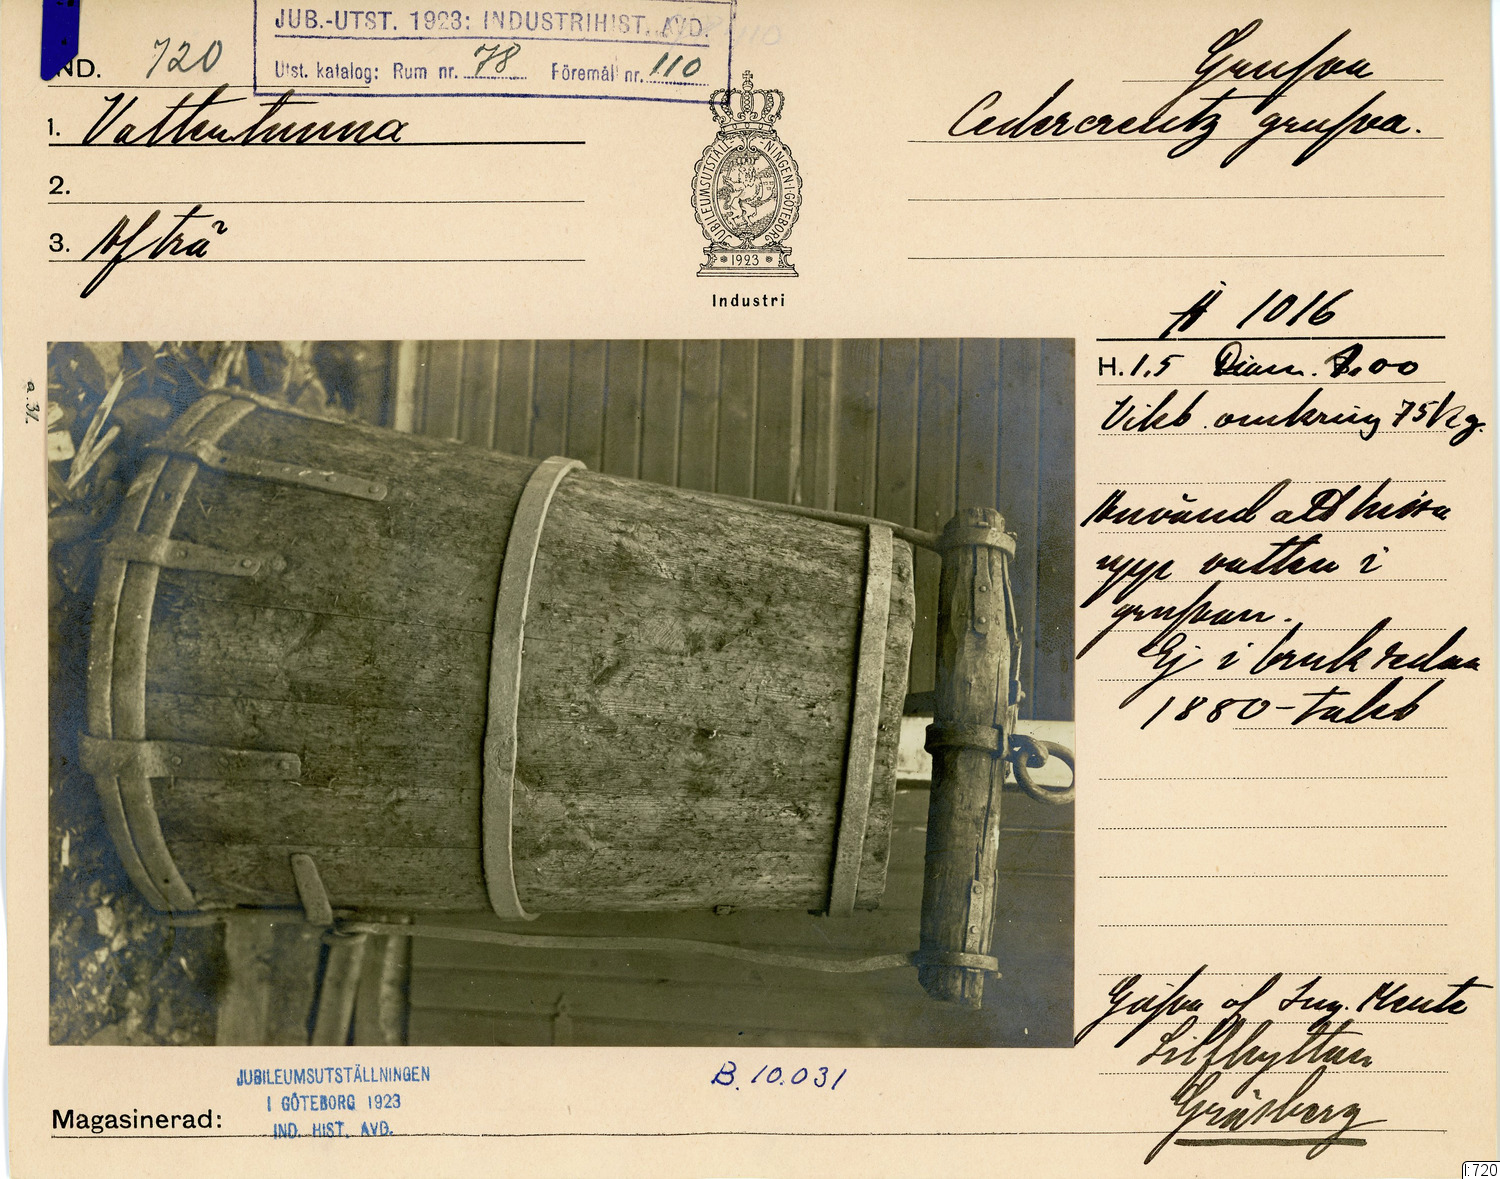 JUB.-UTST. 1923: INDUSTRIHIST. AVD.
Utst. katalog: Rum nr. 78 Föremål nr. 110
IND. 720
1. Vattentunna
2.
3. Af trä
JUBILEUMSUTSTÄLLNINGEN I GÖTEBORG
1923
Industri
Grufva
Cedercreutz grufva.
1016
H. 1.5 Diam. 1.00
Vikt. omkring 75 kg.
Använd att hissa
upp vatten i
grufvan.
Ej i bruk sedan
1880-talet
Gåfva af Ing.
Silfhyttan
Gräsberg
a.31.
JUBILEUMSUTSTÄLLNINGEN
I GÖTEBORG 1923
IND. HIST. AVD.
B. 10.031
Magasinerad:
I:720